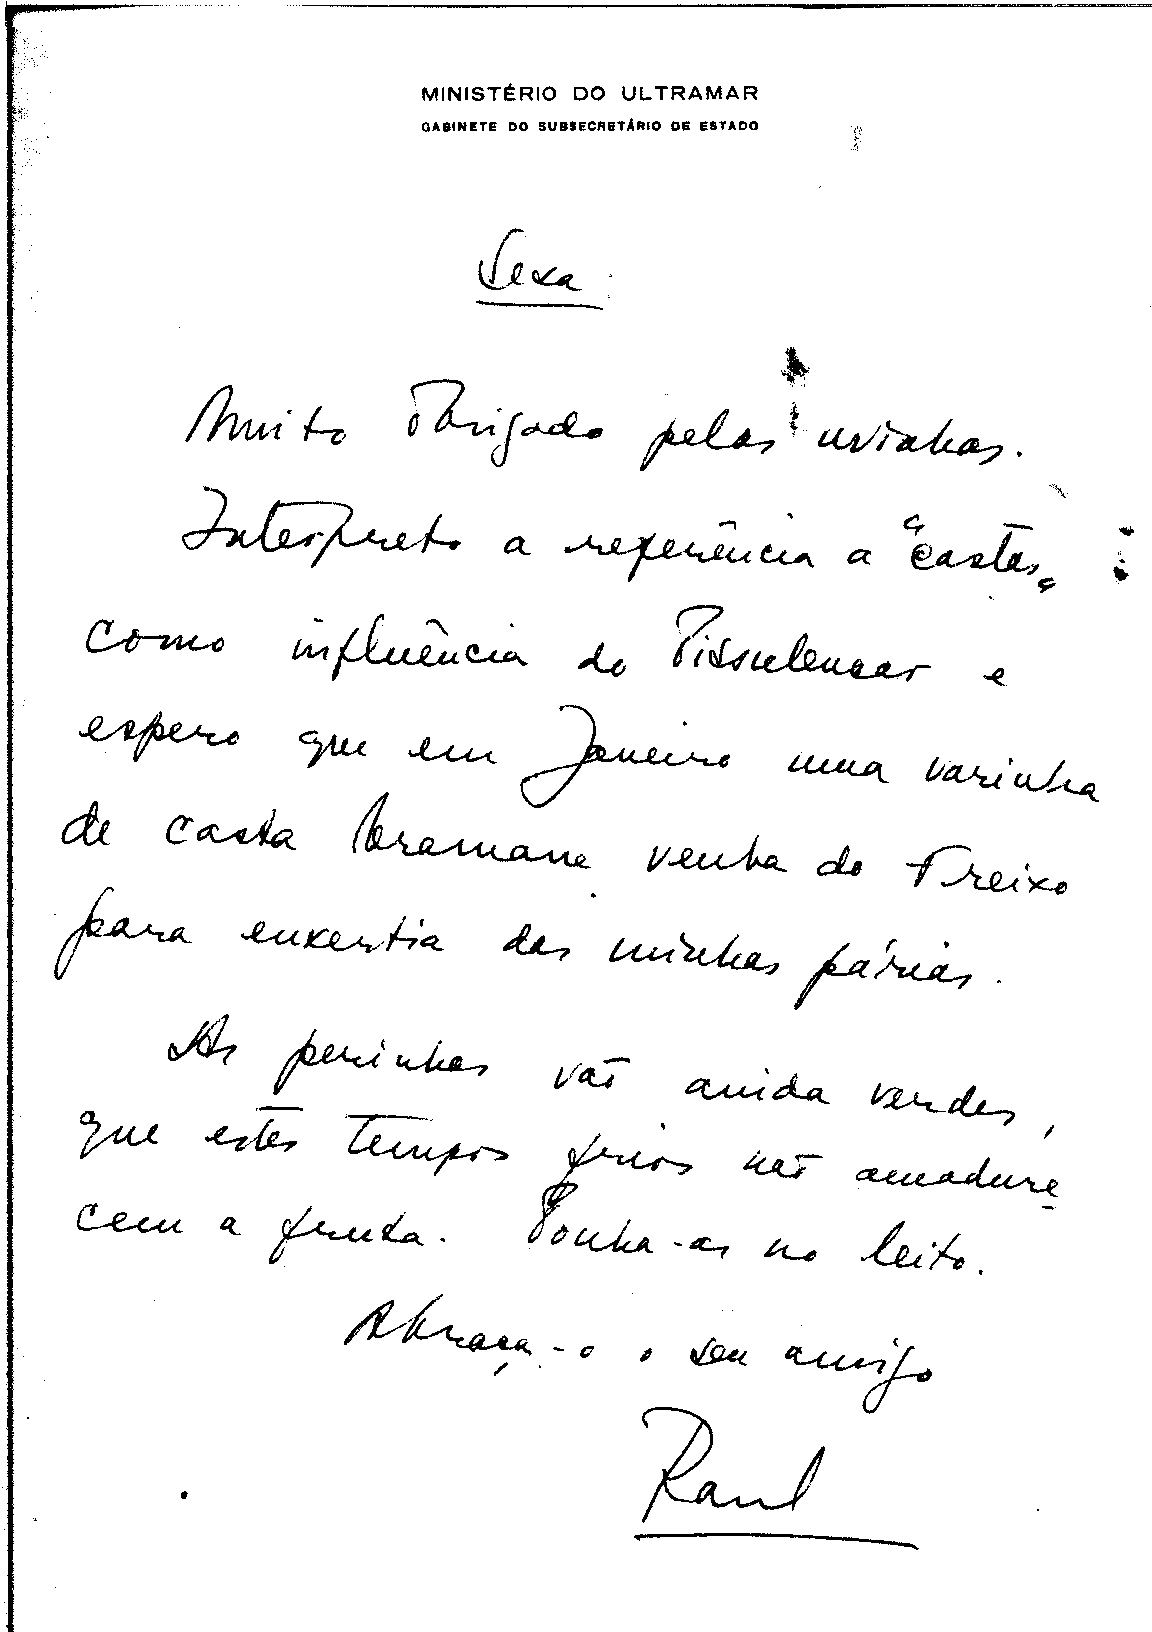 MINISTÉRIO DO ULTRAMAR
GABINETE DO SUBSECRETÁRIO DE ESTADO
Sexa
Muito obrigado pelas uvinhas.
Interpreto a referência a "castas"
como influência do Pissulencar e
espero que em Janeiro uma varinha
de casta bramane venha do Freixo
para enxertia das minhas párias.
As perinhas vão ainda verdes,
que estes tempos frios não amadure
cem a fruta. Ponha-as no leito.
Abraça-o o seu amigo
Raul